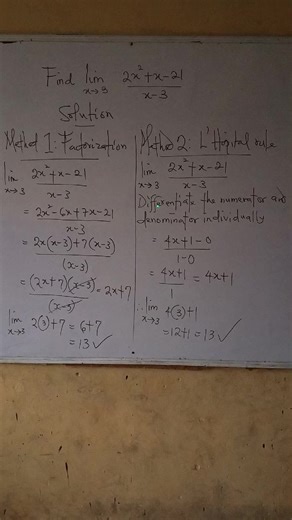 Find lim x→3 (2x² + x - 21)/(x - 3)
Solution
Method 1: Factorization
lim x→3 (2x² + x - 21)/(x - 3)
= (2x² - 6x + 7x - 21)/(x - 3)
= (2x(x-3) + 7(x-3))/(x-3)
= ((2x+7)(x-3))/(x-3) = 2x+7
lim x→3 2(3)+7 = 6+7
= 13 ✓
Method 2: L'Hopital rule
lim x→3 (2x² + x - 21)/(x - 3)
Differentiate the numerator and
denominator individually
= (4x+1-0)/(1-0)
= (4x+1)/1 = 4x+1
∴ lim x→3 4(3)+1
= 12+1 = 13 ✓